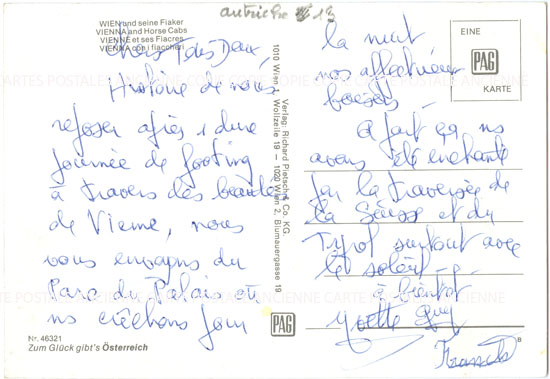 autriche 13
WIEN und seine Fiaker
VIENNA and Horse Cabs
VIENNE et ses Fiacres
VIENNA con i fiaccheri
Vous Deux,
Histoire de nous
reposer après 1 dure
journée de footing
à travers des beautés
de Vienne, nous
vous envoyons du
Parc du Palais où
ns créchons pour
Nr. 46321
Zum Glück gibt's Österreich
Verlag: Richard Pietsch & Co. KG.
1010 Wien, Wollzeile 19 — 1020 Wien 2, Blumauergasse 19
PAG
la nuit
nos affectueux
baisers
A part ça ns
avons été enchantés
par la traversée de
la Suisse et du
Tyrol surtout avec
le soleil
à bientôt
Yvette Guy
EINE
PAG
KARTE
8
CARTE POSTALE ANCIENNE